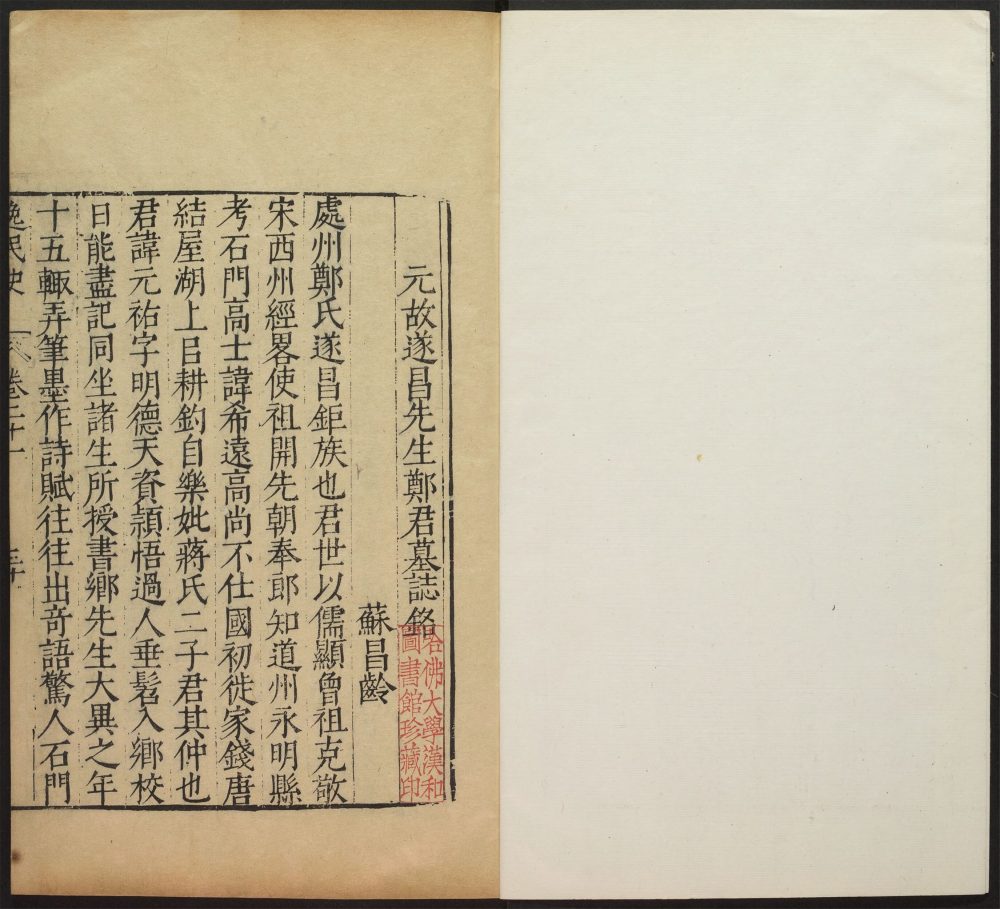 元故遂昌先生鄭君墓誌銘
蘇昌齡
處州鄭氏遂昌鉅族也君世以儒顯曾祖克敬
宋西州經畧使祖開先朝奉郎知道州永明縣
考石門高士諱希遠高尚不仕國初徙家錢唐
結屋湖上㠯耕釣自樂妣蔣氏二子君其仲也
君諱元祐字明德天資頴悟過人垂髫入鄉校
日能盡記同坐諸生所授書鄉先生大異之年
十五輙弄筆墨作詩賦往往出奇語驚人石門
逸民史
卷二十一
哈佛大學漢和
圖書館珍藏印